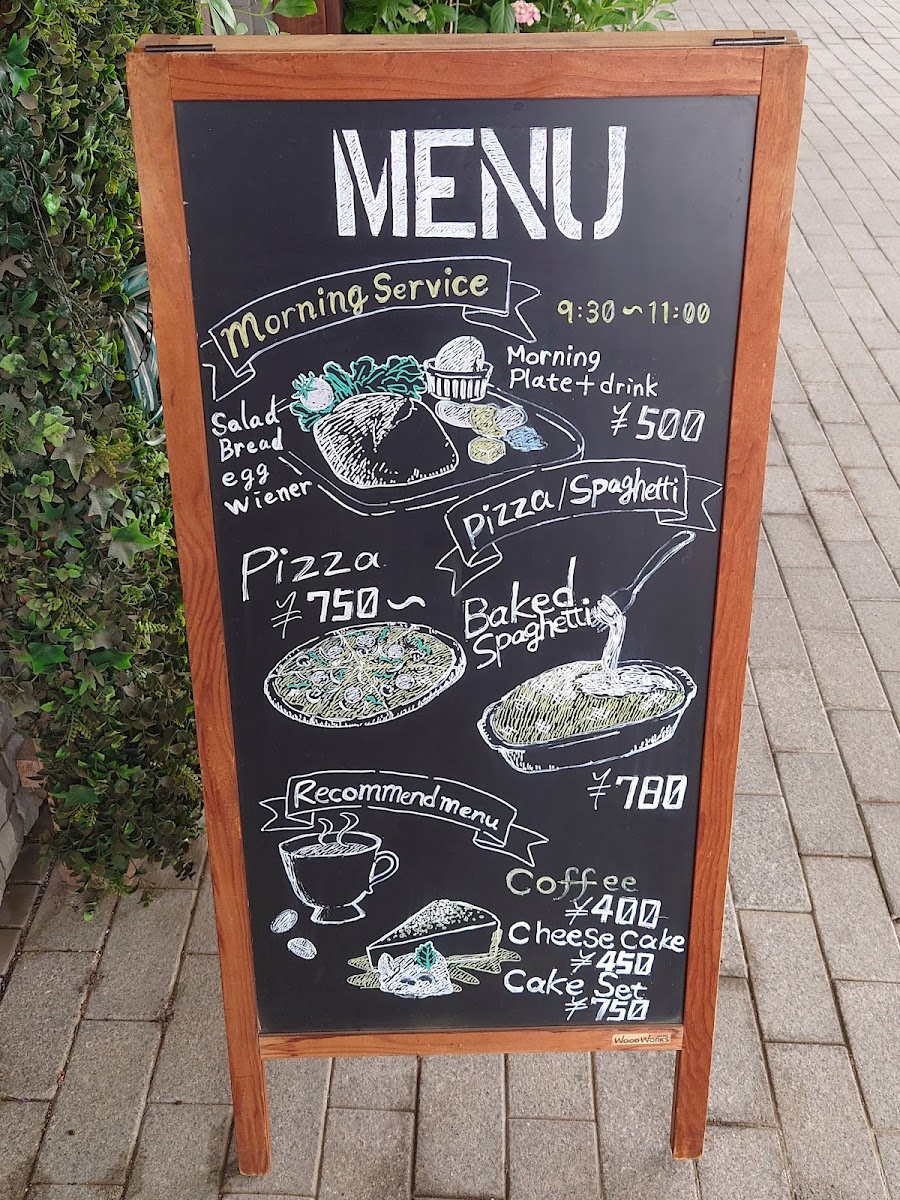 MENU
Morning Service
9:30~11:00
Morning
Plate + drink
¥500
Salad
Bread
egg
wiener
Pizza/Spaghetti
Pizza
¥750~
Baked
Spaghetti
¥780
Recommend menu
Coffee
¥400
Cheese Cake
¥450
Cake Set
¥750
WOODWORKS